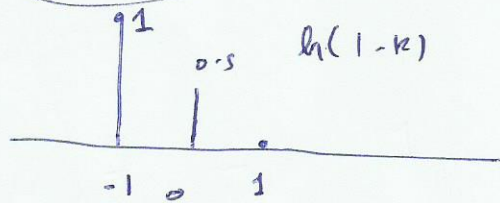 1
0.5 h(1-k)
-1 0 1